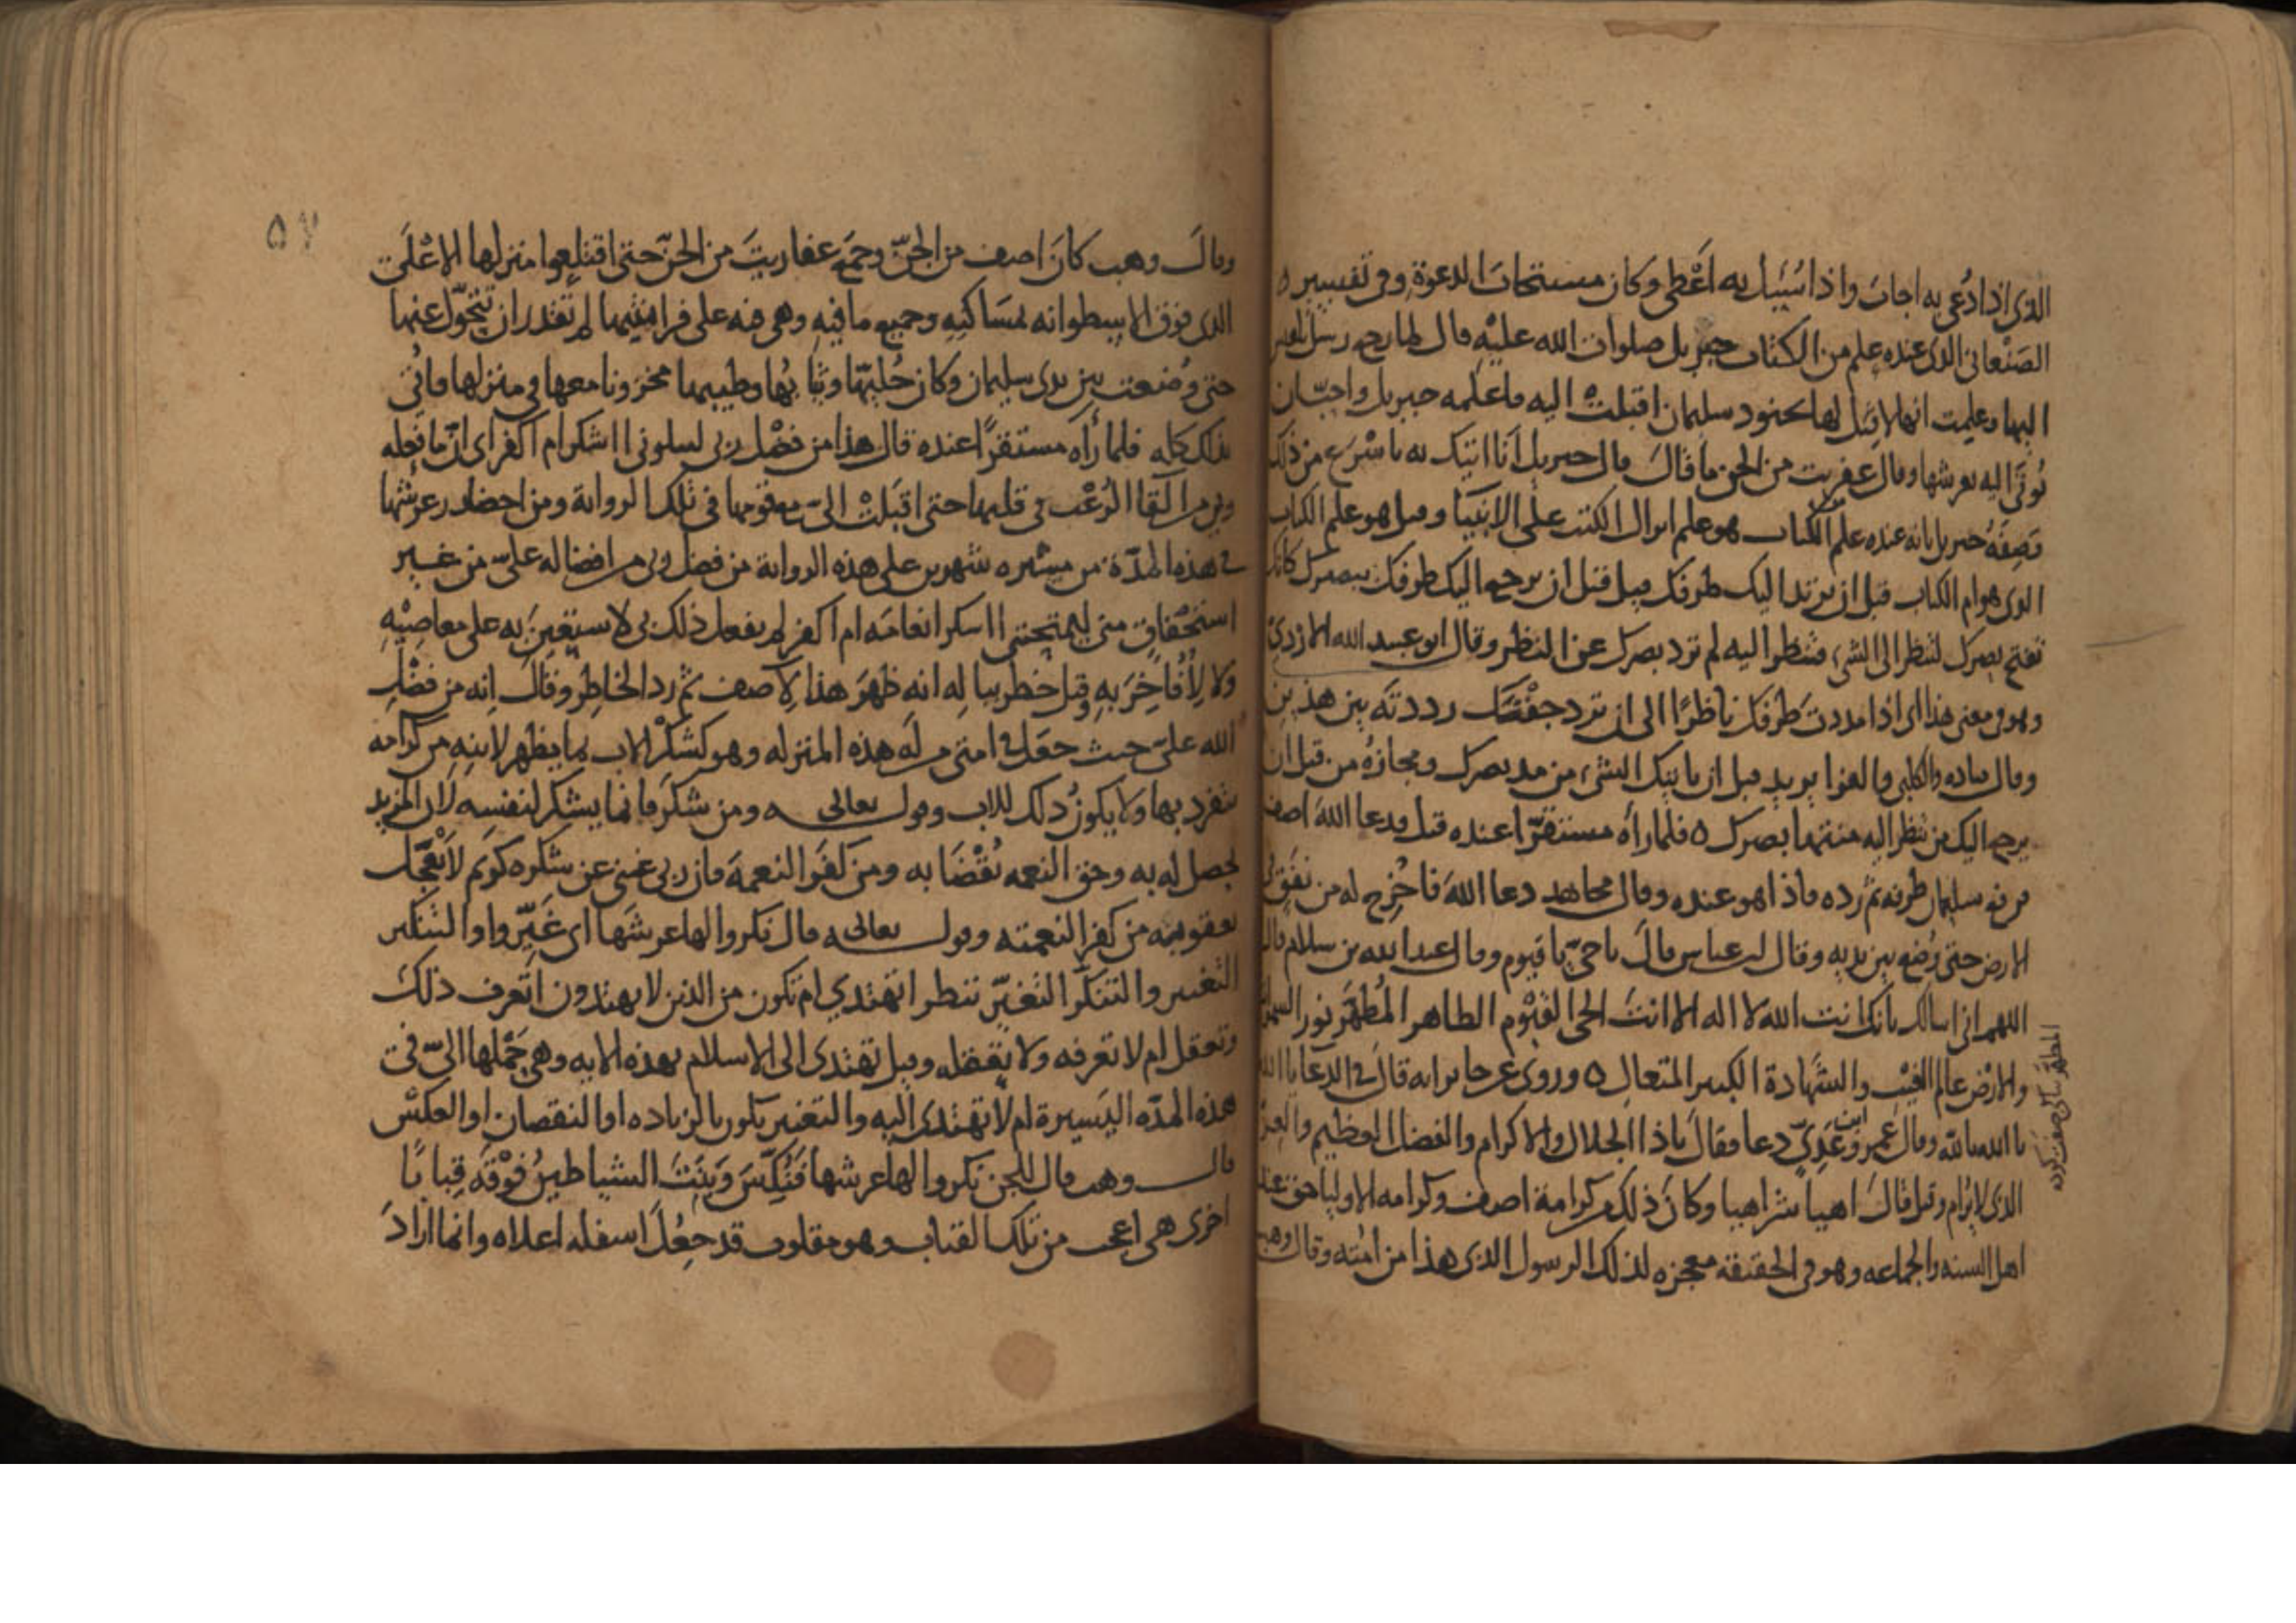 الذي اذا دُعي به اجاب واذا سُئيل به اَعْطى وكان مستجابَ الدعوة وفي تفسير
الصَنْعاني الذى عنده علم من الكتاب جبريل صلوات الله عليْه قال لما رجع رسل بلقيس
اليها وعلمت انها لا قِبَل لها بجنود سليمان اقبلتْ اليه فاعلمه جبريل واحبّ ان
يُوتَى اليه بعرشها وقال عفريت من الجن ما قالَ قال جبريل اَنا اتيك به باسْرَع من ذلك
وَصِفَهُ جبريل بانه عنده علم الكتاب هو علم انزال الكتب على الانبيَا وقيل هو علم الكتاب
الذى هو ام الكتاب قبل ان يرتد اليك طرفك قيل قبل ان يرجع اليك طرفك ببصرك كانك
تفتح بصرك لتنظر الى الشي فتنظر اليه لم ترد بصرك عن النظر وقال ابو عبيد الله الازدي
وهو في معنى هذا اى اذا مددتَ طرفك ناظرًا الى ان ترد جفنك رددته بين هذين
وقال قتاده والكلبى والفرا يريد قبل ان ياتيك الشي من مد بصرك ومجازهُ من قبل ان
يرجع اليك من تنظر اليه منتهيا بصرك ه فلما رأه مستقرًّا عنده قيل فدعا اللهَ اصف
فرفع سليمان طرفه ثم رده فاذا هو عنده وقال مجاهد دعا اللهَ فاخْرِج له من نفق فى
الارض حتى وُضِع بين يديه وقال ابن عباس قالَ يا حيّ يا قيوم وقال عبدالله بن سلام قال
اللهم انى اسالك بانك انت الله لا اله الا انتَ الحي القيّوم الطاهر المُطهَّر نور السموات
والارْض عالم الغيْب والشَّهادة الكبير المتعال ه وروى عن جابر انه قالَ في الدعا يا الله
يا الله يا الله وقالَ عمرو عَدِيّ دعا فقالَ ياذا الجلال والاكرام والفضل العظيم والعز
الذى لا يُرام وقيل قالَ اهيا شراهيا وكانَ ذلك من كرامة اصف وكرامه الاوليا حق عند
اهل السنه والجماعه وهو في الحقيقة معجزه لذلك الرسول الذى هذا من امته وقال وهب
٥٧
وقالَ وهب كانَ اصف من الجنّ وجمَع عفاريتَ من الجنّ حتى اقتلعوا منزلها الاعْلى
الذى فوق الاسطوانه بمسَاكنِهِ وجميع ما فيه وهى فيه على فراشها لم تقدر ان تتحوّل عنها
حتى وُضعت بين يدى سليمان وكان حُليهّا وثيابُها وطيبها مخزونا معها في منزلها فاتُى
بذلك كله فلما رأه مستقرًّا عنده قال هذا من فضْل ربى ليبلونى ااشكر ام اكفر اى انّ ما فعله
ربي من القا الرُعْب في قلبها حتى اقبَلَتْ الىّ مع قومها فى تلك الرواية ومن احضار عرشها
في هذه المدّة من مسيره شهرين على هذه الرواية من فضل ربى من افضاله علىّ من غير
استحْقاق منى ليمتحننى ااشكر انعامَه ام اكفر لم يفعل ذلك بى لاستعِينَ به على معاصِيْهِ
ولا لِأُفاخِرَ به وقيل خطر ببالِه انه ظهرَ هذا لآصف ثم رد الخاطِر وقالَ انه من فضْلِ
الله علىّ حيث جعَل في امتى من له هذه المنزله وهو كشكْر الاب بما يظهر لابنِهِ من كرامه
ينفرد بها ولا يكونُ ذلك للاب وقوله تعالى ومن شكَرَ فانما يشكر لنفسه لان المزيد
يحصل له به وحق النعمه يُقْضَا به ومن كفَرَ النعمة فان ربى غنى عن شكره كريم لا يعجّل
بعقوبته من كفر النعمته وقوله تعالى قال نكروا لها عرشَها اى غَيِّروا والتنكير
التغيير والتنكّر التغيّر ننظر اتهتدي ام تكون من الذين لا يهتدون اتعرف ذلك
وتعقل ام لا تعرفه ولا تعقله وقيل تهتدى الى الاسلام بهذه الايه وهى جمْلها الىّ فى
هذه المدّه اليَسيرة ام لا تهتدى اليه والتغيير يكون بالزياده او النقصان او العكس
قال وهب قال للجن نكروا لها عرشها فَنُكِّسَ وَبَنَتَ الشياطينُ فوْقَه قبابًا
اخرى هى اعجب من تلك القباب وهو مقلوب قد جعُلَ اسفله اعلاه وانما ارادَ